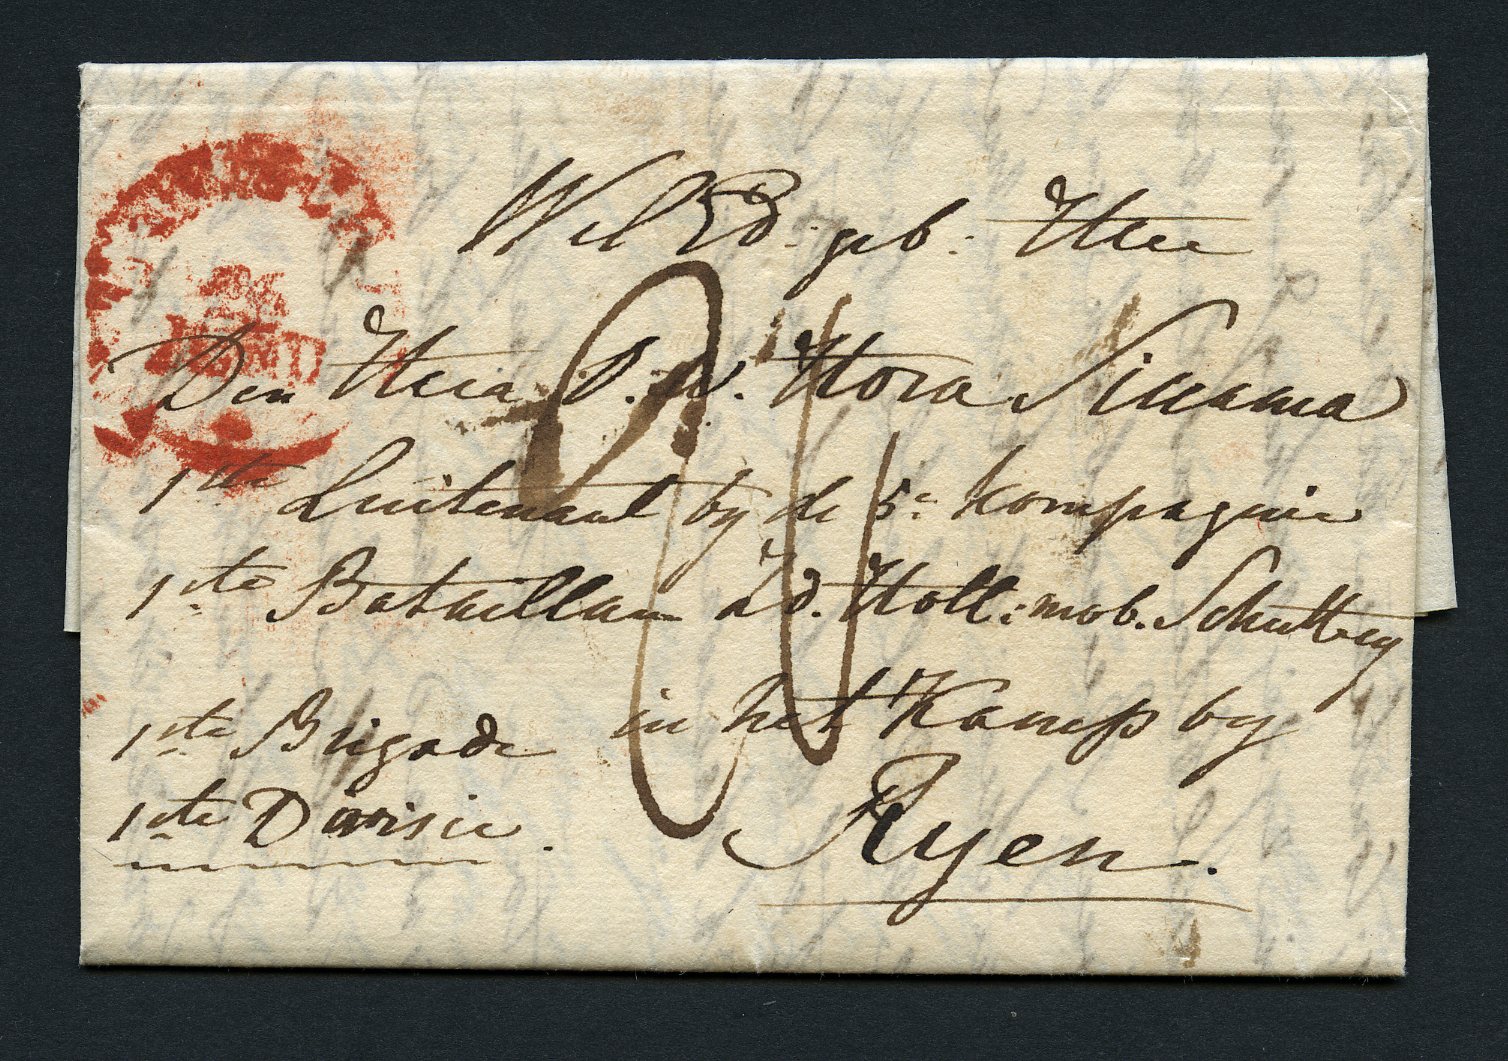 Wel Ed: geb: Heer
Den Heer P. W. Hora Siccama
1ste Luitenant by de 5e kompagnie
1ste Bataillon Zd. Holl: mob. Schuttery
1ste Brigade in het Kamp by
1ste Divisie. Ryen.